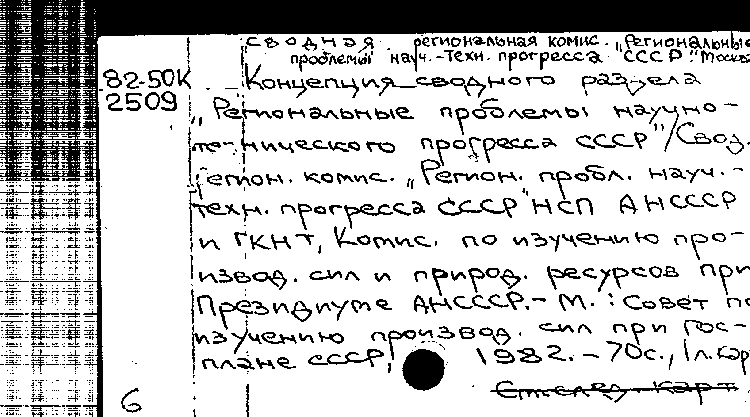 Сводная региональная комис. „Региональные
проблемы науч.-техн. прогресса СССР" Москва
82-50К
2509
Концепция сводного раздела
„Региональные проблемы научно-
технического прогресса СССР"/Свод.
регион. комис. „Регион. пробл. науч.-
техн. прогресса СССР" НСП АНСССР
и ГКНТ, Комис. по изучению про-
извод. сил и природ. ресурсов при
Президиуме АНСССР.- М.: Совет по
изучению производ. сил при Гос-
плане СССР, 1982.-70с., 1л.кар
См.след. карт
6